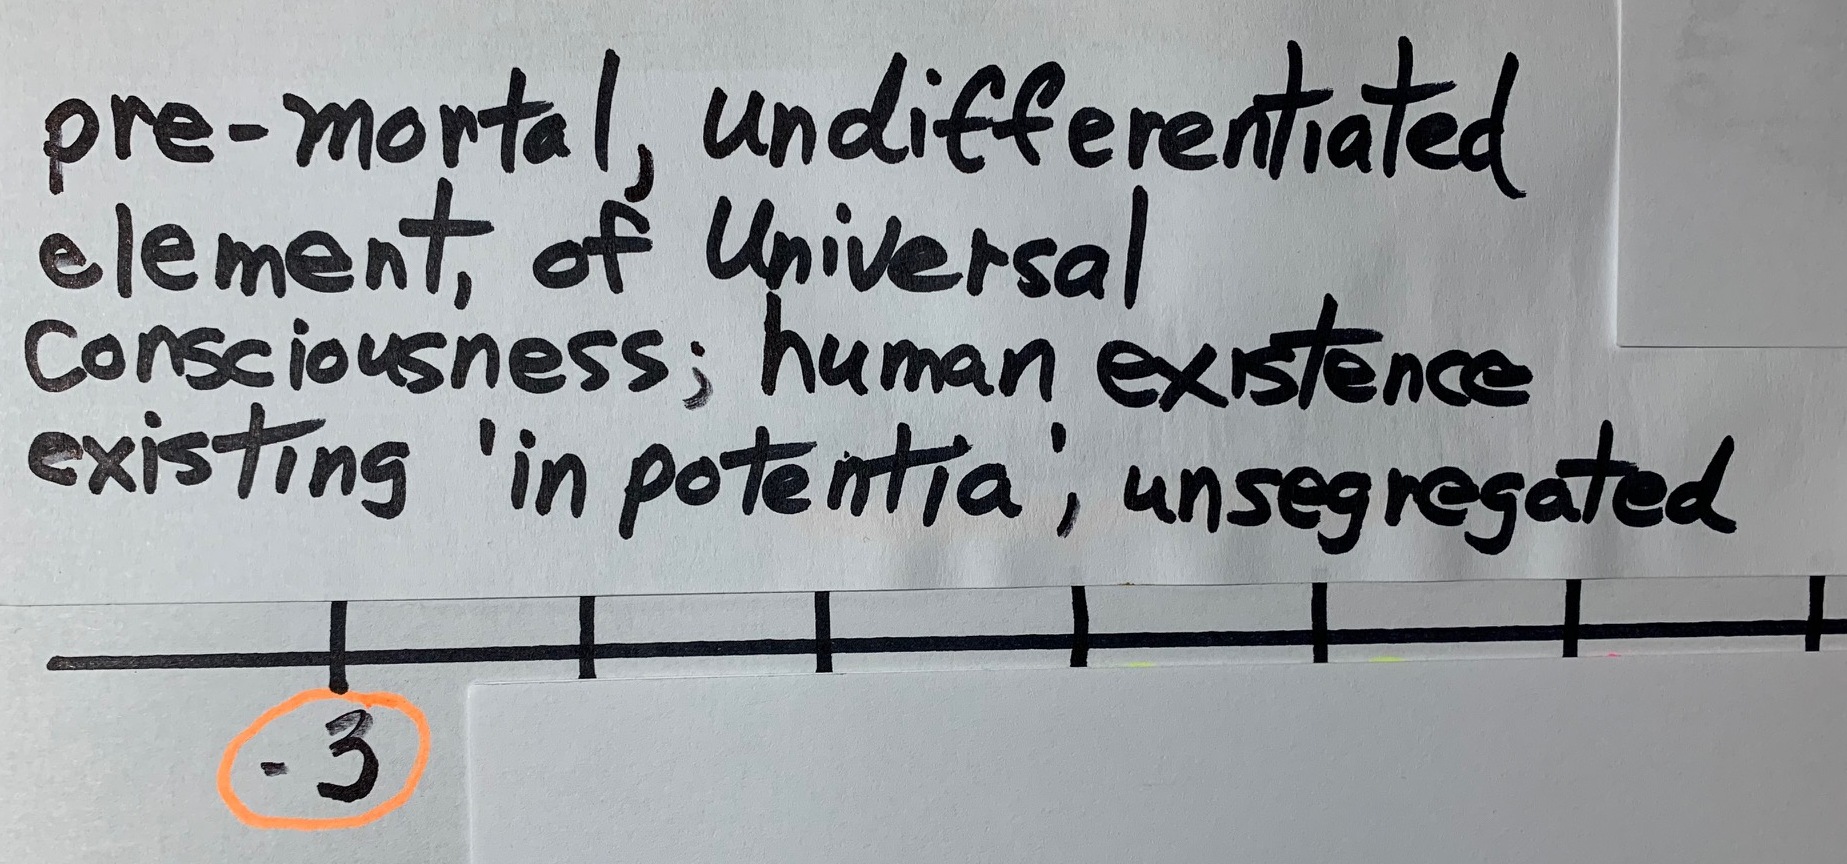 pre-mortal, undifferentiated
element, of Universal
Consciousness; human existence
existing 'in potentia', unsegregated
-3